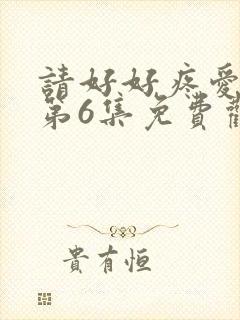 請好好疼愛
第6集免費
貴有恒